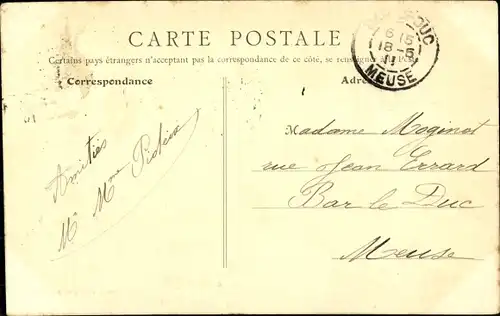 CARTE POSTALE
Certains pays étrangers n'acceptant pas la correspondance de ce côté, se renseigner à la Poste
Correspondance
Adre
DUC
6 15
18-6
11
MEUSE
Amitiés
Mr Mme
Madame Moginot
rue Jean Errard
Bar le Duc
Meuse